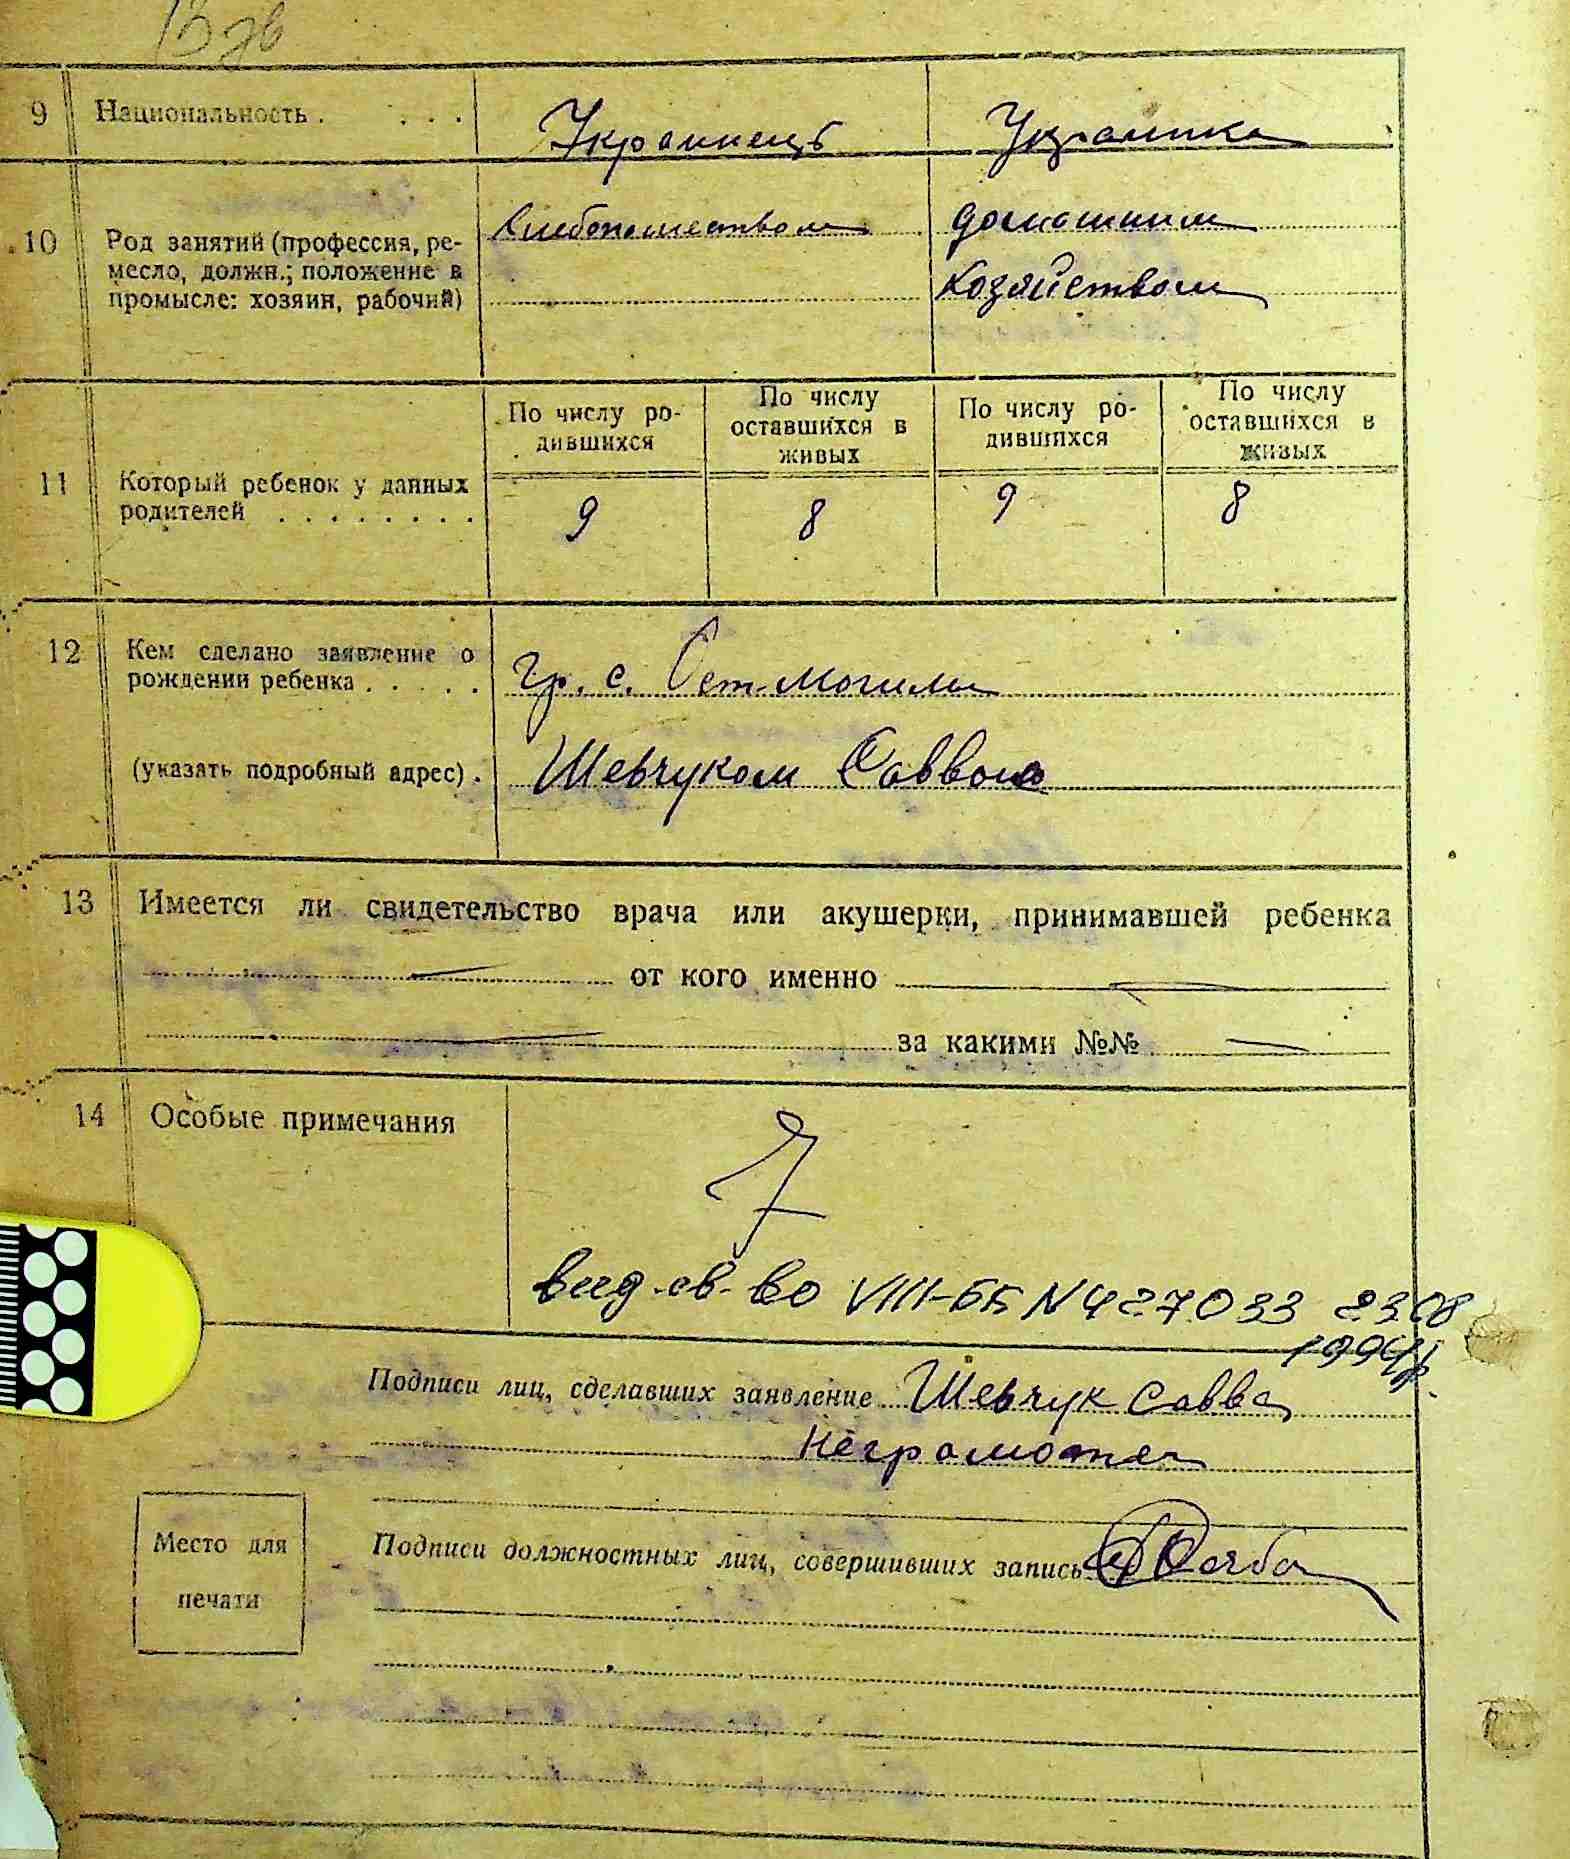 9 Национальность . . . . Украинець Украинка
10 Род занятий (профессия, ре-
месло, должн.; положение в
промысле: хозяин, рабочий)
Хлебопашеством
домашним
хозяйством
По числу ро-
дившихся
По числу
оставшихся в
живых
По числу ро-
дившихся
По числу
оставшихся в
живых
11 Который ребенок у данных
родителей . . . . . . . .
9 8 9 8
12 Кем сделано заявление о
рождении ребенка . . . . .
гр. с. Ост. Могили
(указать подробный адрес) . Шевчуком Саввою
13 Имеется ли свидетельство врача или акушерки, принимавшей ребенка
— от кого именно —
— за какими №№ —
14 Особые примечания
вид. св-во VIII-БК N 427033 23.08
1994р.
Подписи лиц, сделавших заявление Шевчук Савва
неграмотен
Место для
печати
Подписи должностных лиц, совершивших запись